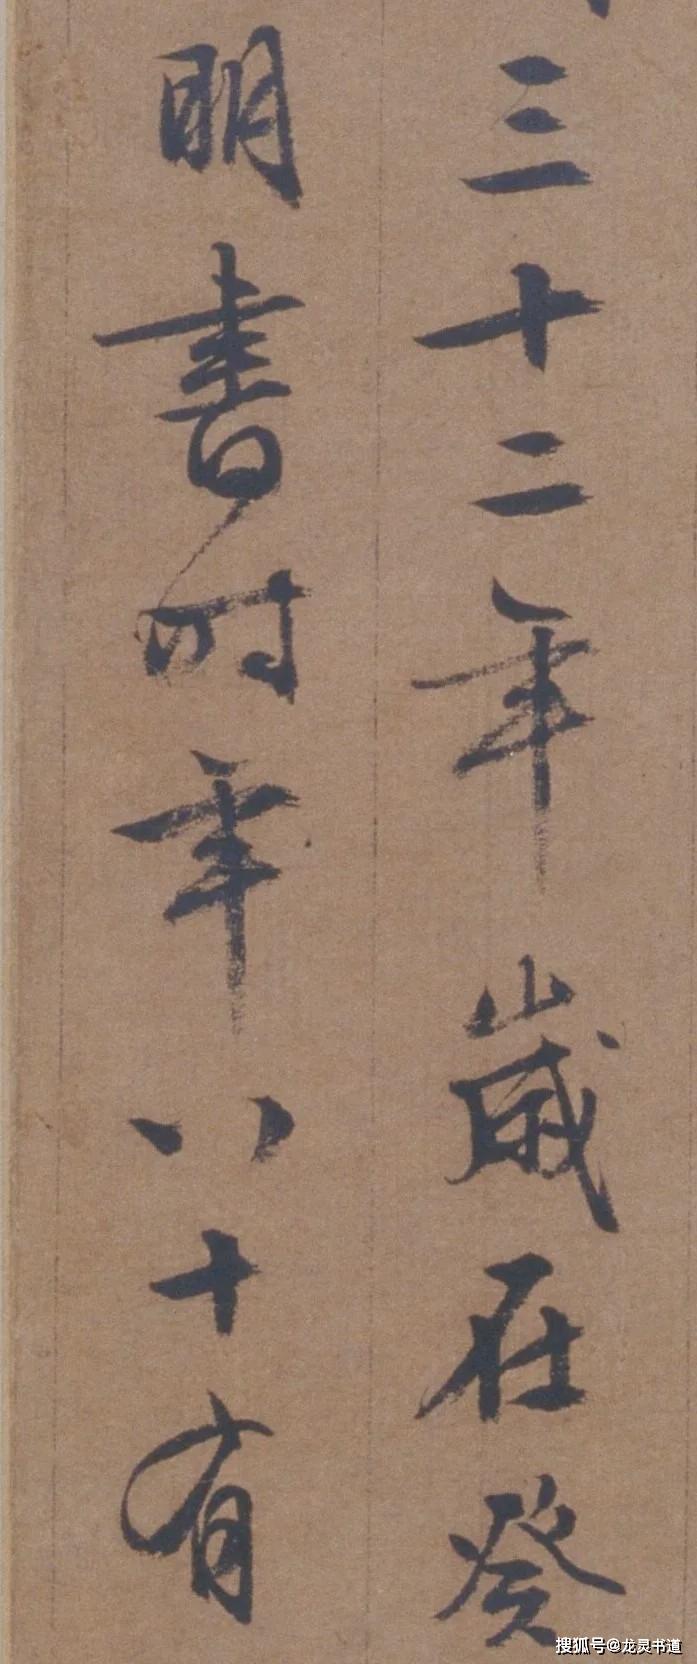 三十二年歲在癸
明書时年八十有
搜狐号@龙灵书道